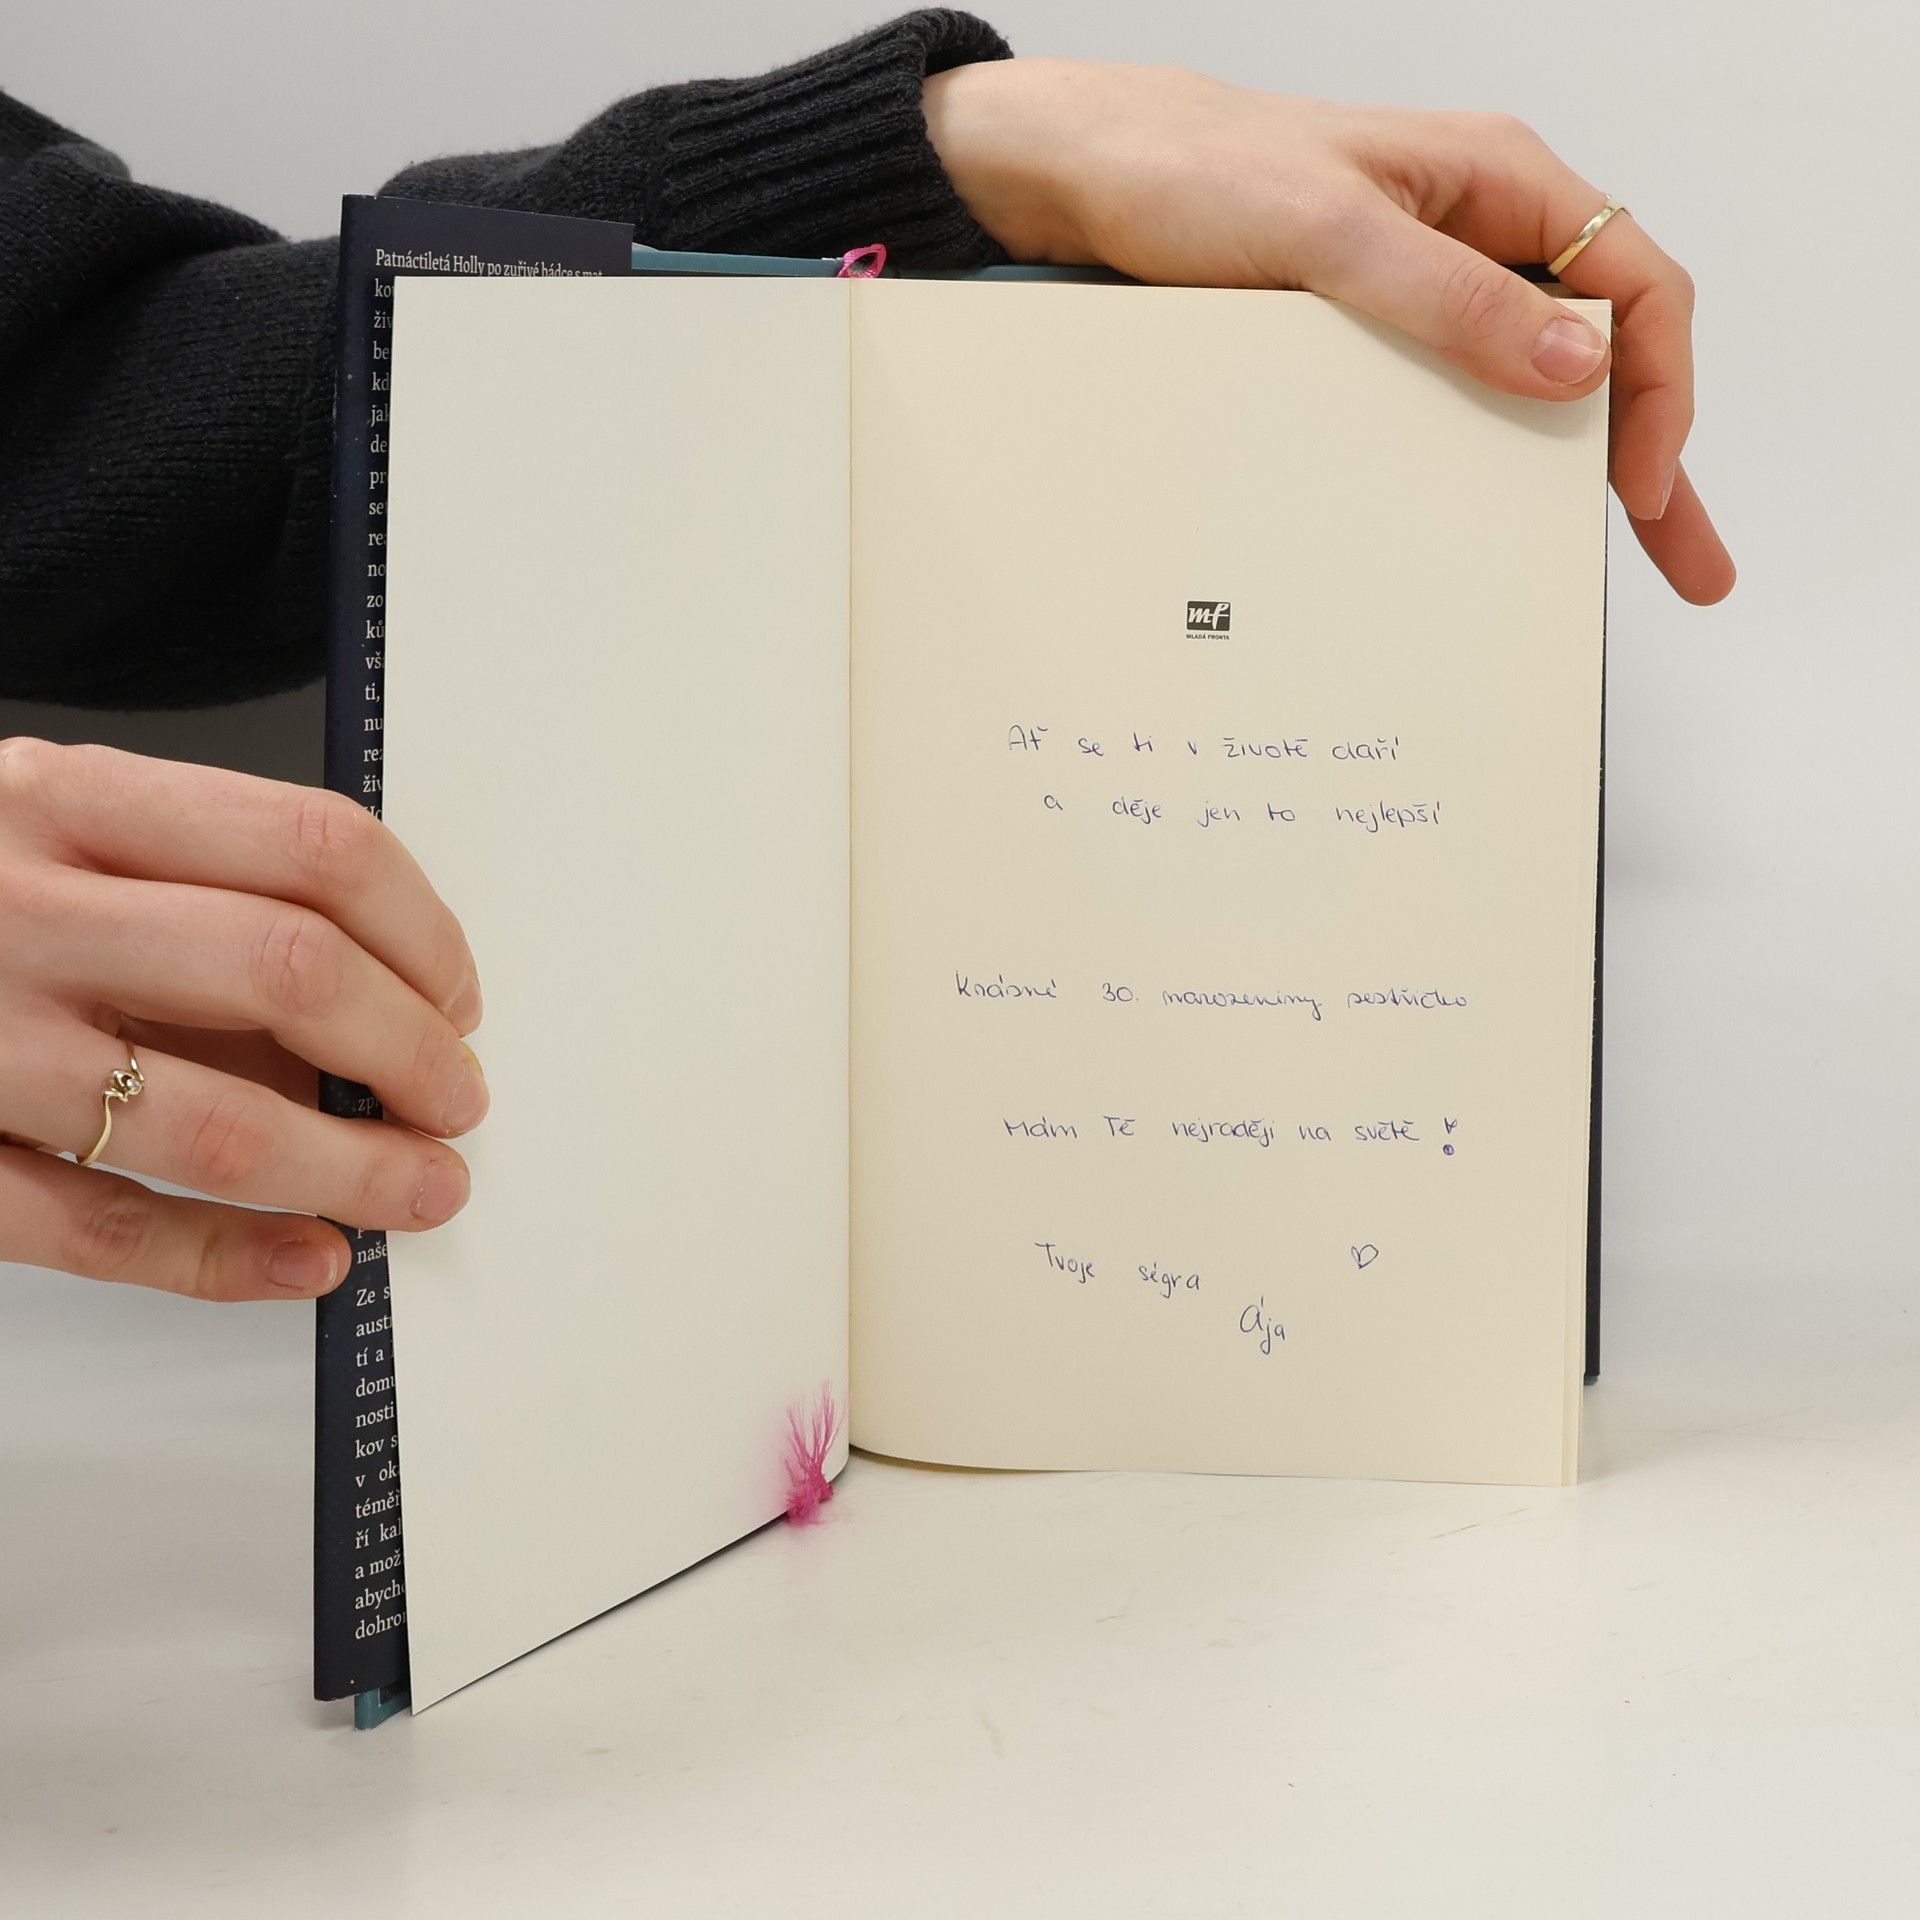 Patnáctiletá Holly po zuřivé hádce s mat
ko
živ
be
kd
jak
de
pr
se
re
no
zo
ků
vš
ti,
nu
rez
živ
zp
naše
Ze s
aust
tí a
dom
nosti
kov s
v ok
téměř
ří kal
a mož
abych
dohro
mf
MLADÁ FRONTA
Ať se ti v životě daří
a děje jen to nejlepší
Krásné 30. narozeniny sestřičko
Mám Tě nejraději na světě !
Tvoje ségra
Ája